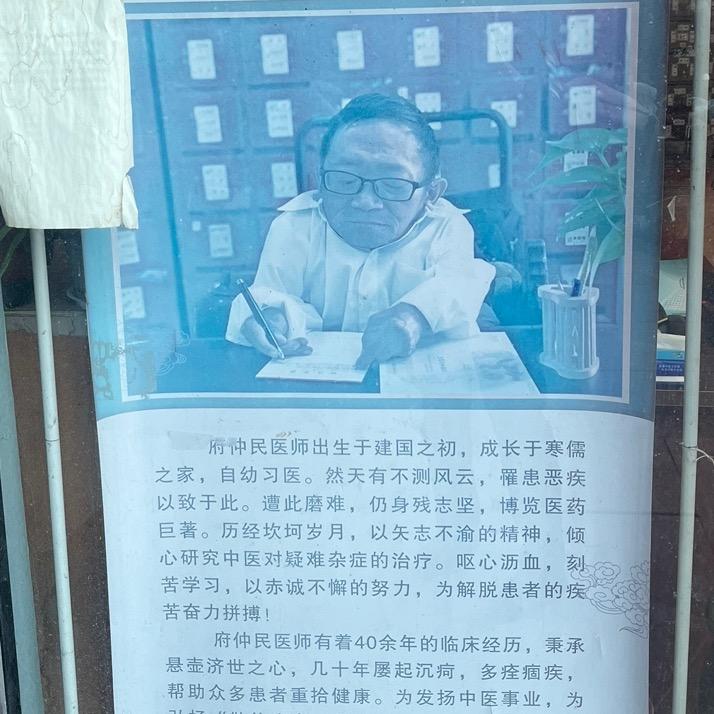 府仲民医师出生于建国之初，成长于寒儒
之家，自幼习医。然天有不测风云，罹患恶疾
以致于此。遭此磨难，仍身残志坚，博览医药
巨著。历经坎坷岁月，以矢志不渝的精神，倾
心研究中医对疑难杂症的治疗。呕心沥血，刻
苦学习，以赤诚不懈的努力，为解脱患者的疾
苦奋力拼搏！
府仲民医师有着40余年的临床经历，秉承
悬壶济世之心，几十年屡起沉疴，多痊痼疾，
帮助众多患者重拾健康。为发扬中医事业，为